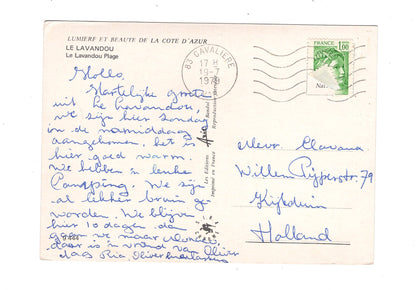 LUMIERE ET BEAUTE DE LA COTE D'AZUR
LE LAVANDOU
Le Lavandou Plage
Hallo,
Hartelijke groeten
uit Le Lavandou,
we zijn hier Zondag
in de namiddag
aangekomen, het is
hier goed warm.
We hebben 'n leuke
Camping. We zijn
al lekker bruin ge-
worden. We blijven
hier 10 dagen dan
gaan we naar
daar is 'n vriend van Olivier
dag Ria, Olivier
83 CAVALIERE
17 H
19-7
1979
1,00
Les Editions
Imprimé en France
Reproduction
Mevr.
Willem Pijperstr. 79
Kijkduin
Holland